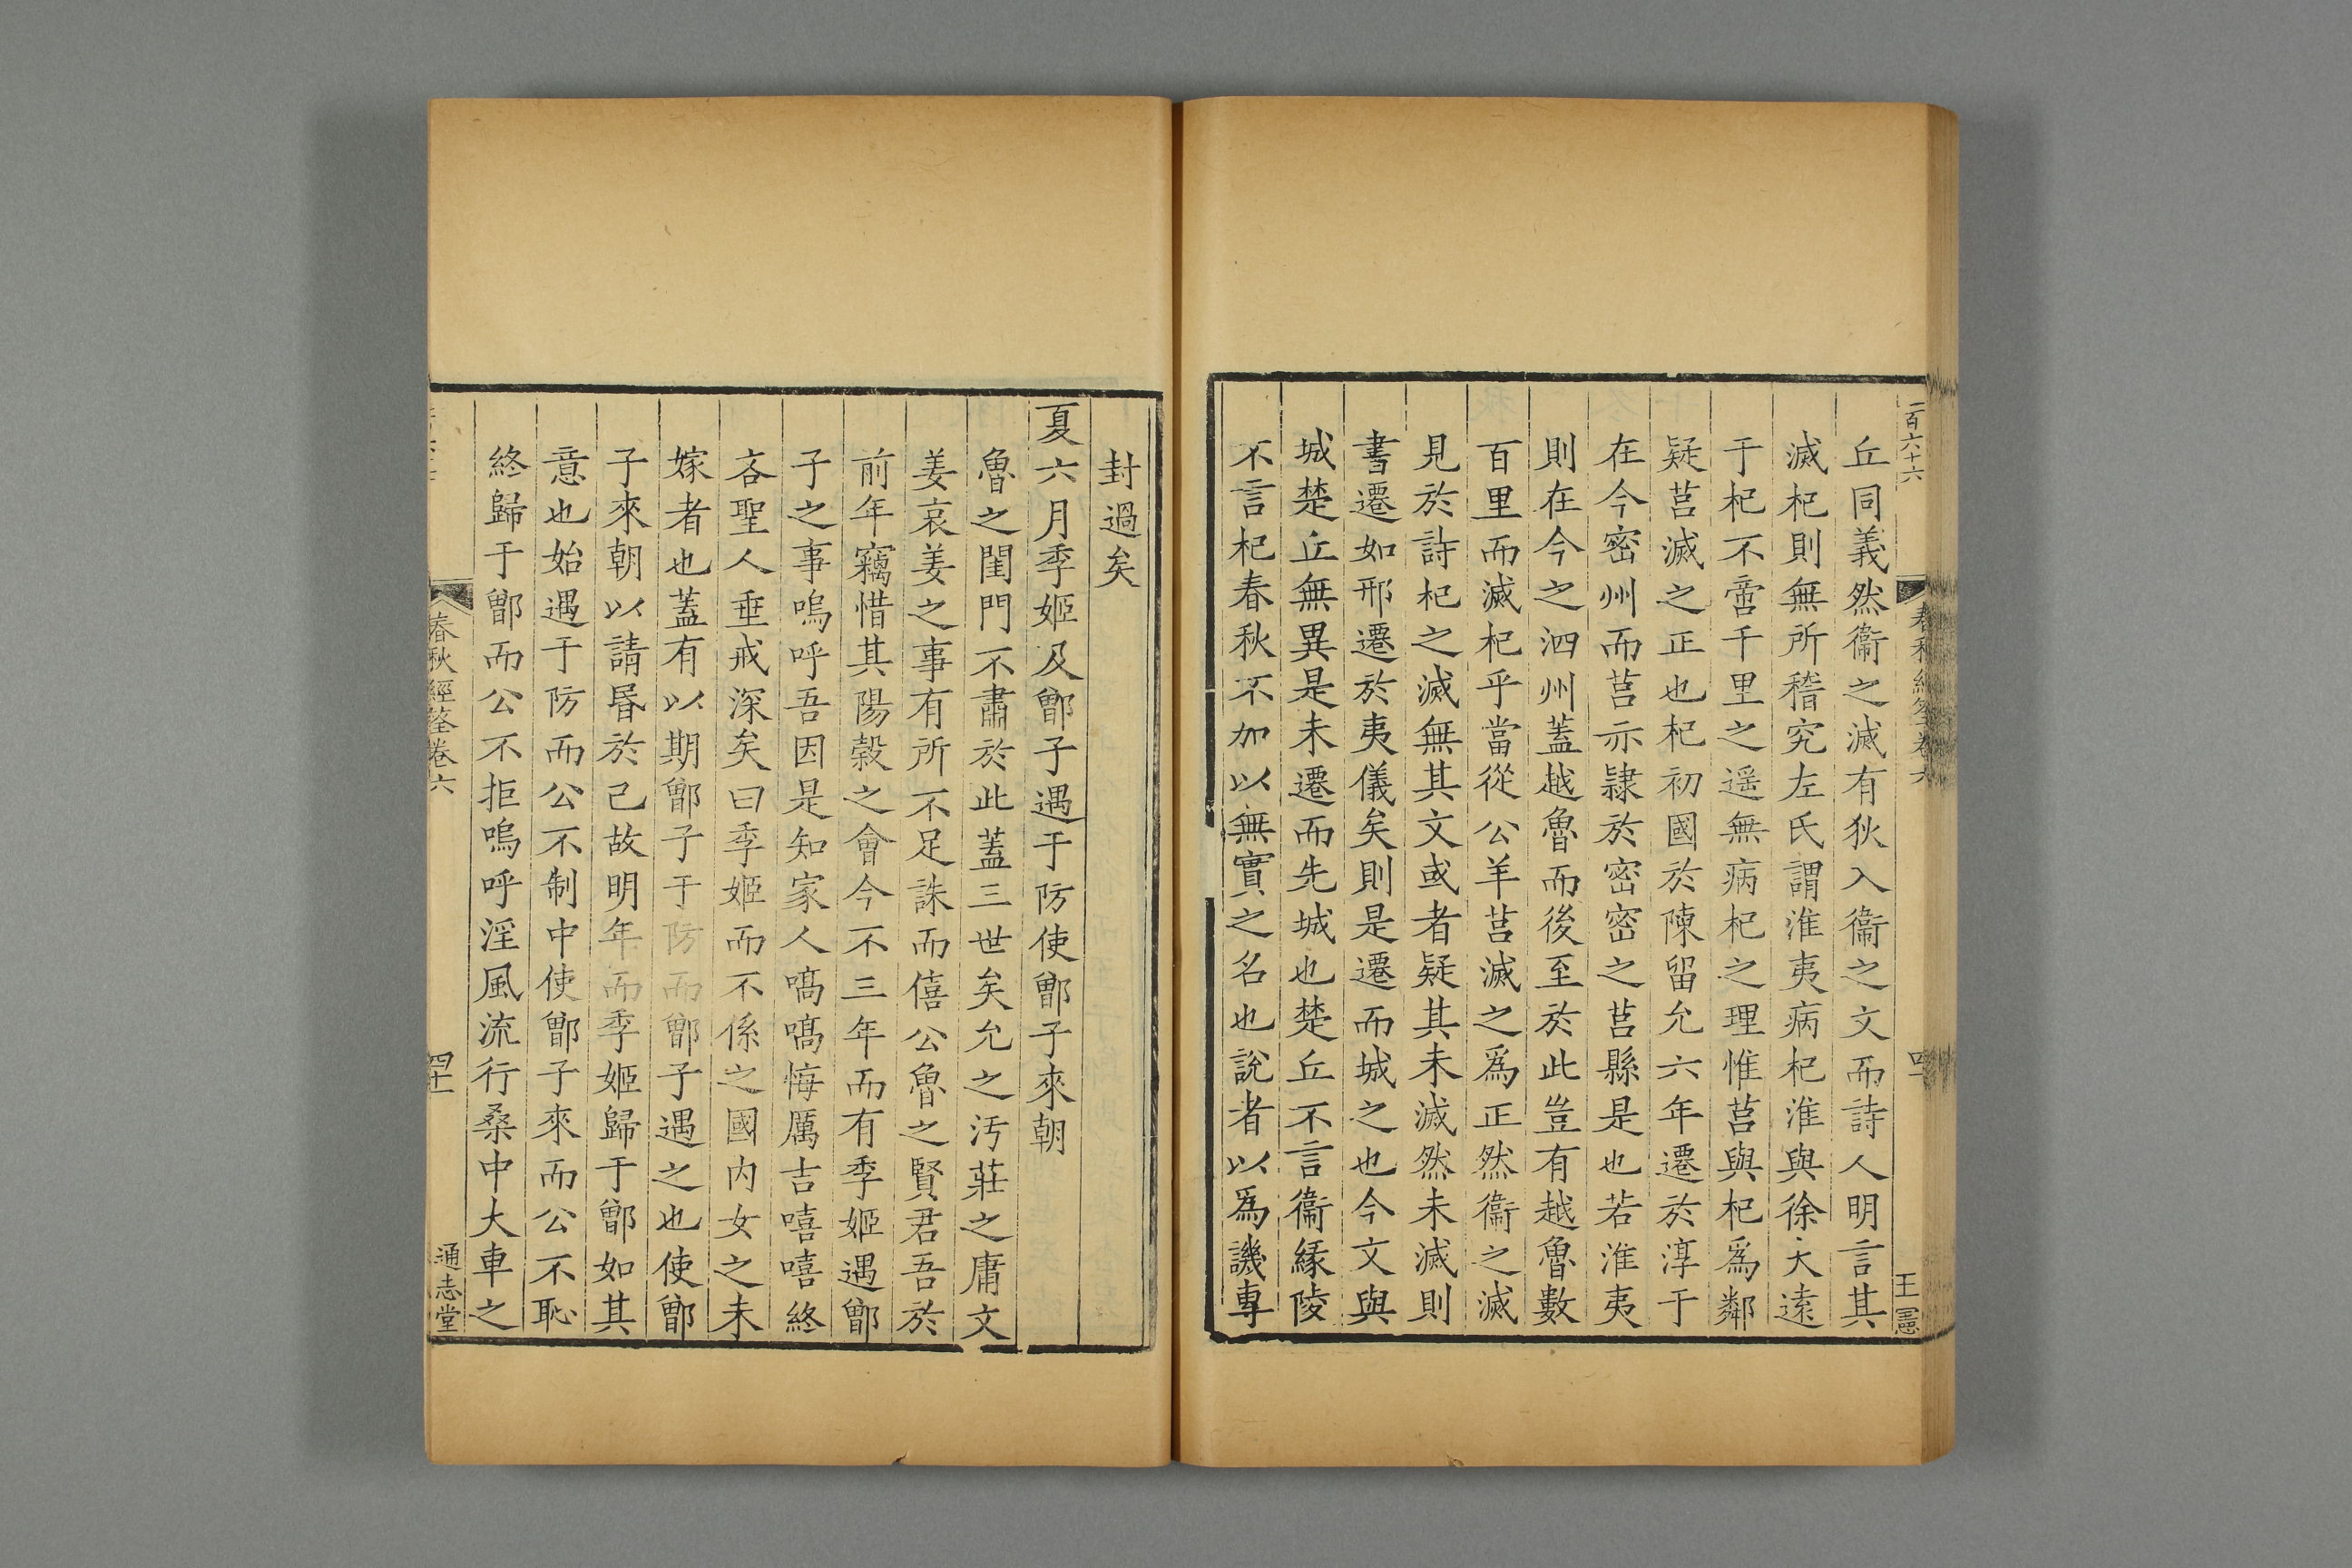 丘同義然衞之滅有狄入衞之文而詩人明言其
滅杞則無所稽究左氏謂淮夷病杞淮與徐大遠
于杞不啻千里之遥無病杞之理惟莒與杞爲鄰
疑莒滅之正也杞初國於陳留允六年遷於淳于
在今密州而莒示隸於密密之莒縣是也若淮夷
則在今之泗州蓋越魯而後至於此豈有越魯數
百里而滅杞乎當從公羊莒滅之爲正然衞之滅
見於詩杞之滅無其文或者疑其未滅然未滅則
書遷如邢遷於夷儀矣則是遷而城之也今文與
城楚丘無異是未遷而先城也楚丘不言衞緣陵
不言杞春秋不加以無實之名也說者以爲譏專
封過矣
夏六月季姬及鄫子遇于防使鄫子來朝
魯之閨門不肅於此蓋三世矣允之汚莊之庸文
姜哀姜之事有所不足誅而僖公魯之賢君吾於
前年竊惜其陽穀之會今不三年而有季姬遇鄫
子之事嗚呼吾因是知家人嗃嗃悔厲吉嘻嘻終
吝聖人垂戒深矣曰季姬而不係之國内女之未
嫁者也蓋有以期鄫子于防而鄫子遇之也使鄫
子來朝以請昏於己故明年而季姬歸于鄫如其
意也始遇于防而公不制中使鄫子來而公不恥
終歸于鄫而公不拒嗚呼淫風流行桑中大車之
春秋經筌卷六
四十一
通志堂
一百六十六
春秋經筌卷六
王憲